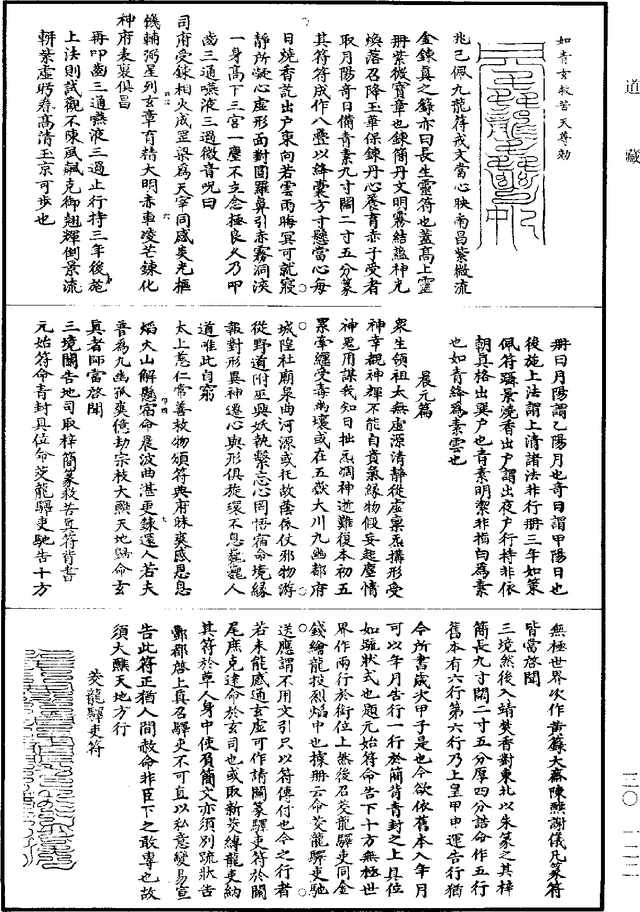 道藏
如青玄救苦天尊勑
兆已佩九龍符戒文當心映南昌紫微流
金鍊真之籙亦曰長生靈符也蓋高上靈
冊紫微寶章也鍊簡丹文明霧結蘊神光
煥落召降玉華保鍊丹心養育赤子受者
取月陽奇日備青素九寸闊二寸五分篆
其符符成作八疊以絳囊方寸懸當心每
日燒香訖出戶東向若雲雨晦冥可就寢
靜所凝心虛形面對圓羅鼻引赤霧洞淡
一身高下三宮一塵不立念極良久乃叩
齒三通嚥液三過微音呪曰
司府受鍊相火成罡梁爲天宰同感炎光樞
機輔弼星列玄章育精大明赤車凌芒鍊化
神府表裏俱昌
再叩齒三通嚥液三過止行持三年後施
上法則試觀不陳風飆克御翹輝倒景流
軿紫虛昇眷高清玉京可步也
冊曰月陽謂乙陽月也奇日謂甲陽日也
後施上法謂上清諸法非行冊三年如策
佩符躡景燒香出戶謂出夜戶行持非依
朝真格出巽戶也青素明潔非指白爲素
也如青絳爲素雲也
晨元篇
衆生領祖太無虛源清靜從虛禀炁搆形受
神幸覩神輝不能自貴氣緣物假妄起塵情
神鬼用謀我知日拙炁凋神逝難復本初五
累牽纏受毒萬壤或在五嶽大川九幽都府
城隍社廟泉曲河源或托故蔭係仗邪物游
從野道附巫興妖執繫忘心罔悟宿命境緣
報對形異神遷心與形俱旋環不息巍巍人
道唯此自窮
太上慈仁常善救物頒符典府昧爽感思息
熖火山解懸宿命晨波曲湛更鍊還人若夫
普爲九幽孤爽億劫宗枝大醮天地歸命玄
真者師當啓聞
三境關告地司取梓簡篆救苦真符背書
元始符命青封具位命茭龍驛吏馳告十方
無極世界次作黃籙大齋陳醮謝儀凡篆符
皆當啓聞
三境然後入靖焚香對東北以朱篆之其梓
簡長九寸闊二寸五分厚四分誥命作五行
舊本有六行第六行乃上皇甲申運告行猶
令所書歲次甲子是也今欲依舊本入年月
可以年月告行一行於簡背青封之上具位
如疏狀式也題元始符命告下十方無極世
界作兩行於銜位上然後召茭龍驛吏同金
錢繪龍投烈焰中也據冊云命茭龍驛吏馳
送應謂不用文引只以符傳付也今之行者
若未能感通玄虛可作請關篆驛吏符於關
尾庶克達命於玄司也或取新茭縛龍吏納
其符於尊人身中使負簡文亦須別疏狀告
酆都啓上真召驛吏不可直以私意變易宣
告此符正猶人間赦命非臣下之敢專也故
須大醮天地方行
茭龍驛吏符
三〇 一二二